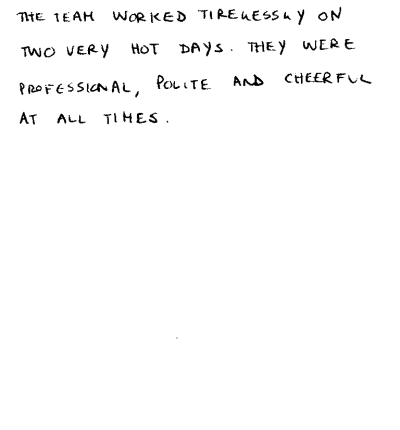 THE TEAM WORKED TIRELESSLY ON
TWO VERY HOT DAYS. THEY WERE
PROFESSIONAL, POLITE AND CHEERFUL
AT ALL TIMES.